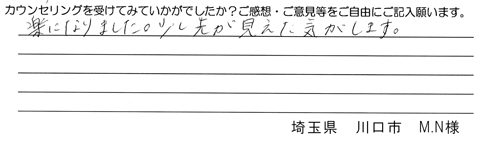 カウンセリングを受けてみていかがでしたか？ご感想・ご意見等をご自由にご記入願います。
楽になりました。少し先が見えた気がします。
埼玉県　川口市　M.N様